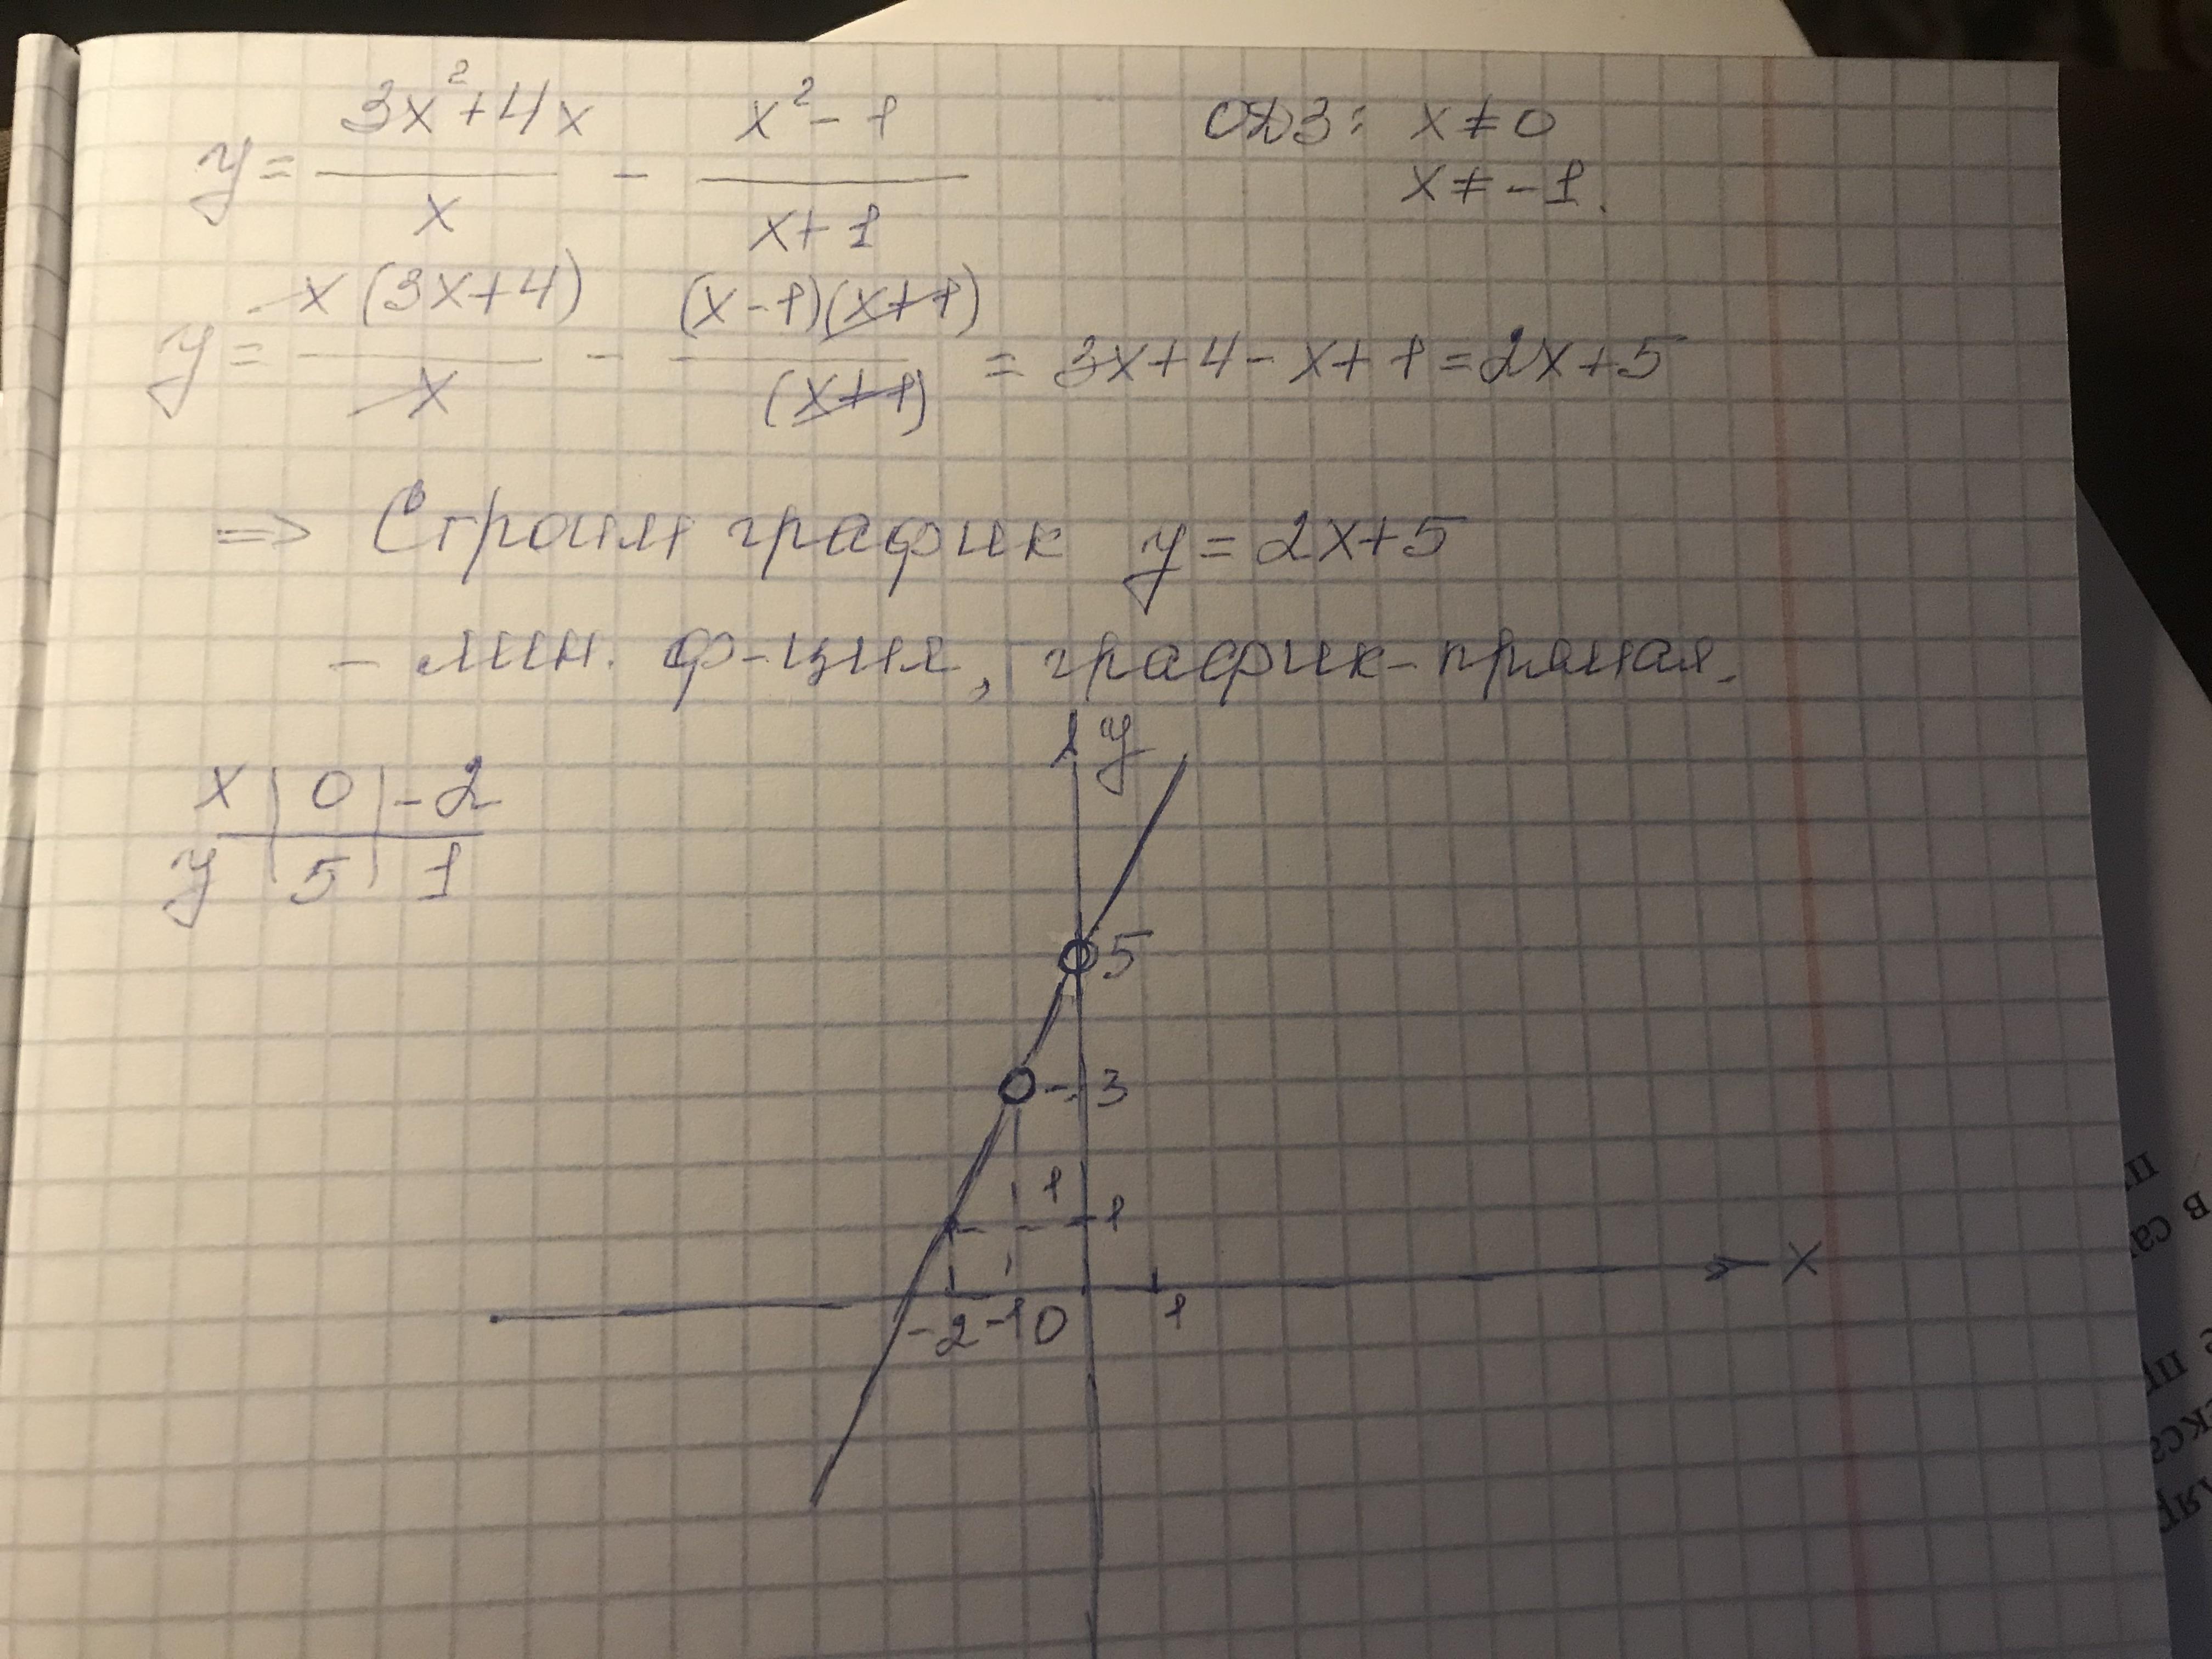 y = (3x² + 4x)/x - (x² - 1)/(x + 1) ОДЗ: x ≠ 0
x ≠ -1.
y = x(3x+4)/x - (x-1)(x+1)/(x+1) = 3x + 4 - x + 1 = 2x + 5
⇒ Строим график y = 2x+5
- лин. ф-ция, график - прямая.
x | 0 | -2
y | 5 | 1
y
5
3
1
1
-2 -1 0 1
x
п
в са